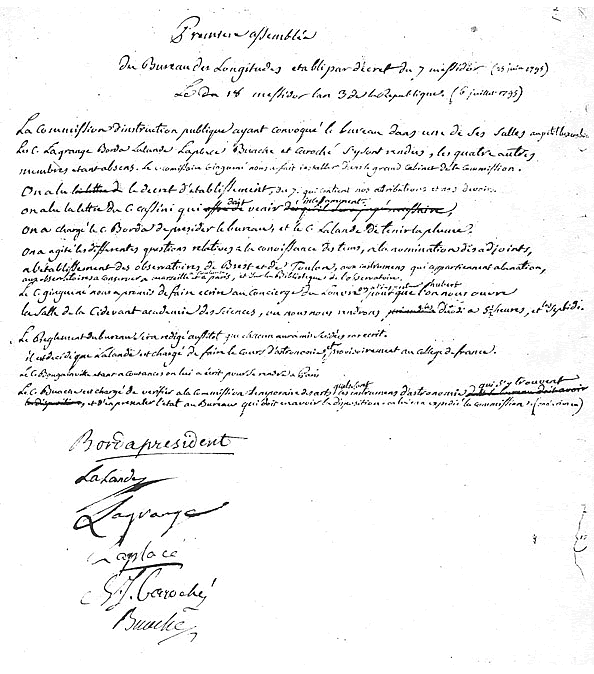 Premiere assemblée
du Bureau des Longitudes etabli par decret du 7 messidor (25 juin 1795)
Le 18 messidor lan 3 de la Republique. (6 juillet 1795)
La Commission d'instruction publique ayant convoqué le bureau dans une de ses salles
Les C. Lagrange Borda Lalande Laplace Buache et Caroché s'y sont rendus, les quatre autres
membres etant absens. Le commissaire Ginguené nous a fait installer dans le grand Cabinet de la Commission.
On a lu la lettre de le decret d'établissement du 7, qui contient nos attributions et nos devoirs.
on a lu la lettre du C. Cassini qui doit venir
On a chargé le C. Borda de presider le bureau, et le C. Lalande de tenir la plume.
On a agité les differentes questions relatives a la connoissance des tems, a la nomination des adjoints,
a letablissement des observatoires de Brest et de Toulon, aux instrumens qui appartiennent a la nation,
aux observatoires a conserver a marseille et a paris, et sur la Bibliotheque de l'observatoire.
Le C. ginguené nous a promis de faire ecrire au Concierge du Louvre pour que l'on nous ouvre
la Salle de la Cidevant academie des Sciences, ou nous nous rendrons a 5 heures, et
Le Reglement du bureau sera redigé aussitot que chacun aura mis ses idées par ecrit.
il est decidé que Lalande est chargé de faire le Cours d'astronomie et provisoirement au college de france.
Le C. Bougainville etant a Coutances on lui a ecrit pour se rendre a Paris
Le C. Buache est chargé de verifier a la commission temporaire des arts quels sont les instrumens d'astronomie qui s'y trouvent
et d'en presenter l'etat au Bureau qui doit en avoir la disposition
Borda president
LaLande
Lagrange
Laplace
Caroché
Buache